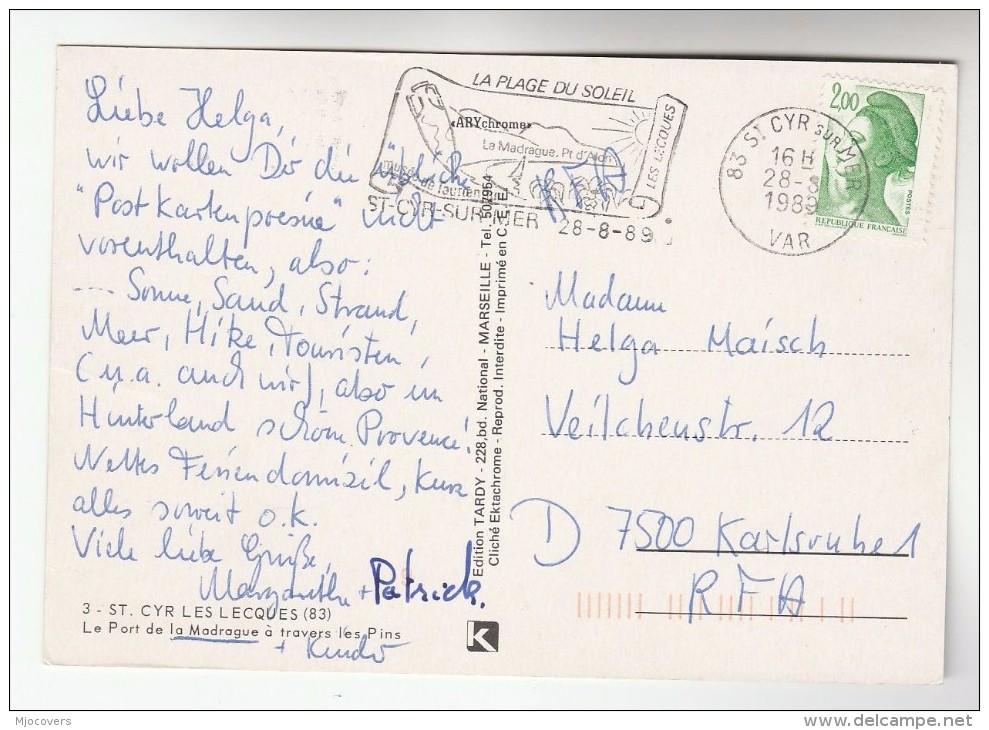 Liebe Helga,
wir wollen Dir die "übliche
"Postkartenpoesie" nicht
vorenthalten, also:
--- Sonne, Sand, Strand,
Meer, Hitze, Touristen,
(u.a. auch wir), also im
Hinterland schöne Provence!
Nettes Feriendomizil, kurz
alles soweit o.k.
Viele liebe Grüße,
Margarethe + Patrick.
+ Kinder
3 - ST. CYR LES LECQUES (83)
Le Port de la Madrague à travers les Pins
Edition TARDY - 228, bd. National - MARSEILLE - Tel. 502954
Cliché Ektachrome - Reprod. Interdite - Imprimé en C.E.E.
«ARYchrome»
K
LA PLAGE DU SOLEIL
La Madrague. Pt d'Alon
LES LECQUES
ST-CYR-SUR-MER 28-8-89
83 ST CYR SUR MER
16 H
28-8
1989
VAR
2,00
POSTES
REPUBLIQUE FRANÇAISE
Madame
Helga Maisch
Veilchenstr. 12
D 7500 Karlsruhe 1
RFA
Mjocovers
delcampe.net